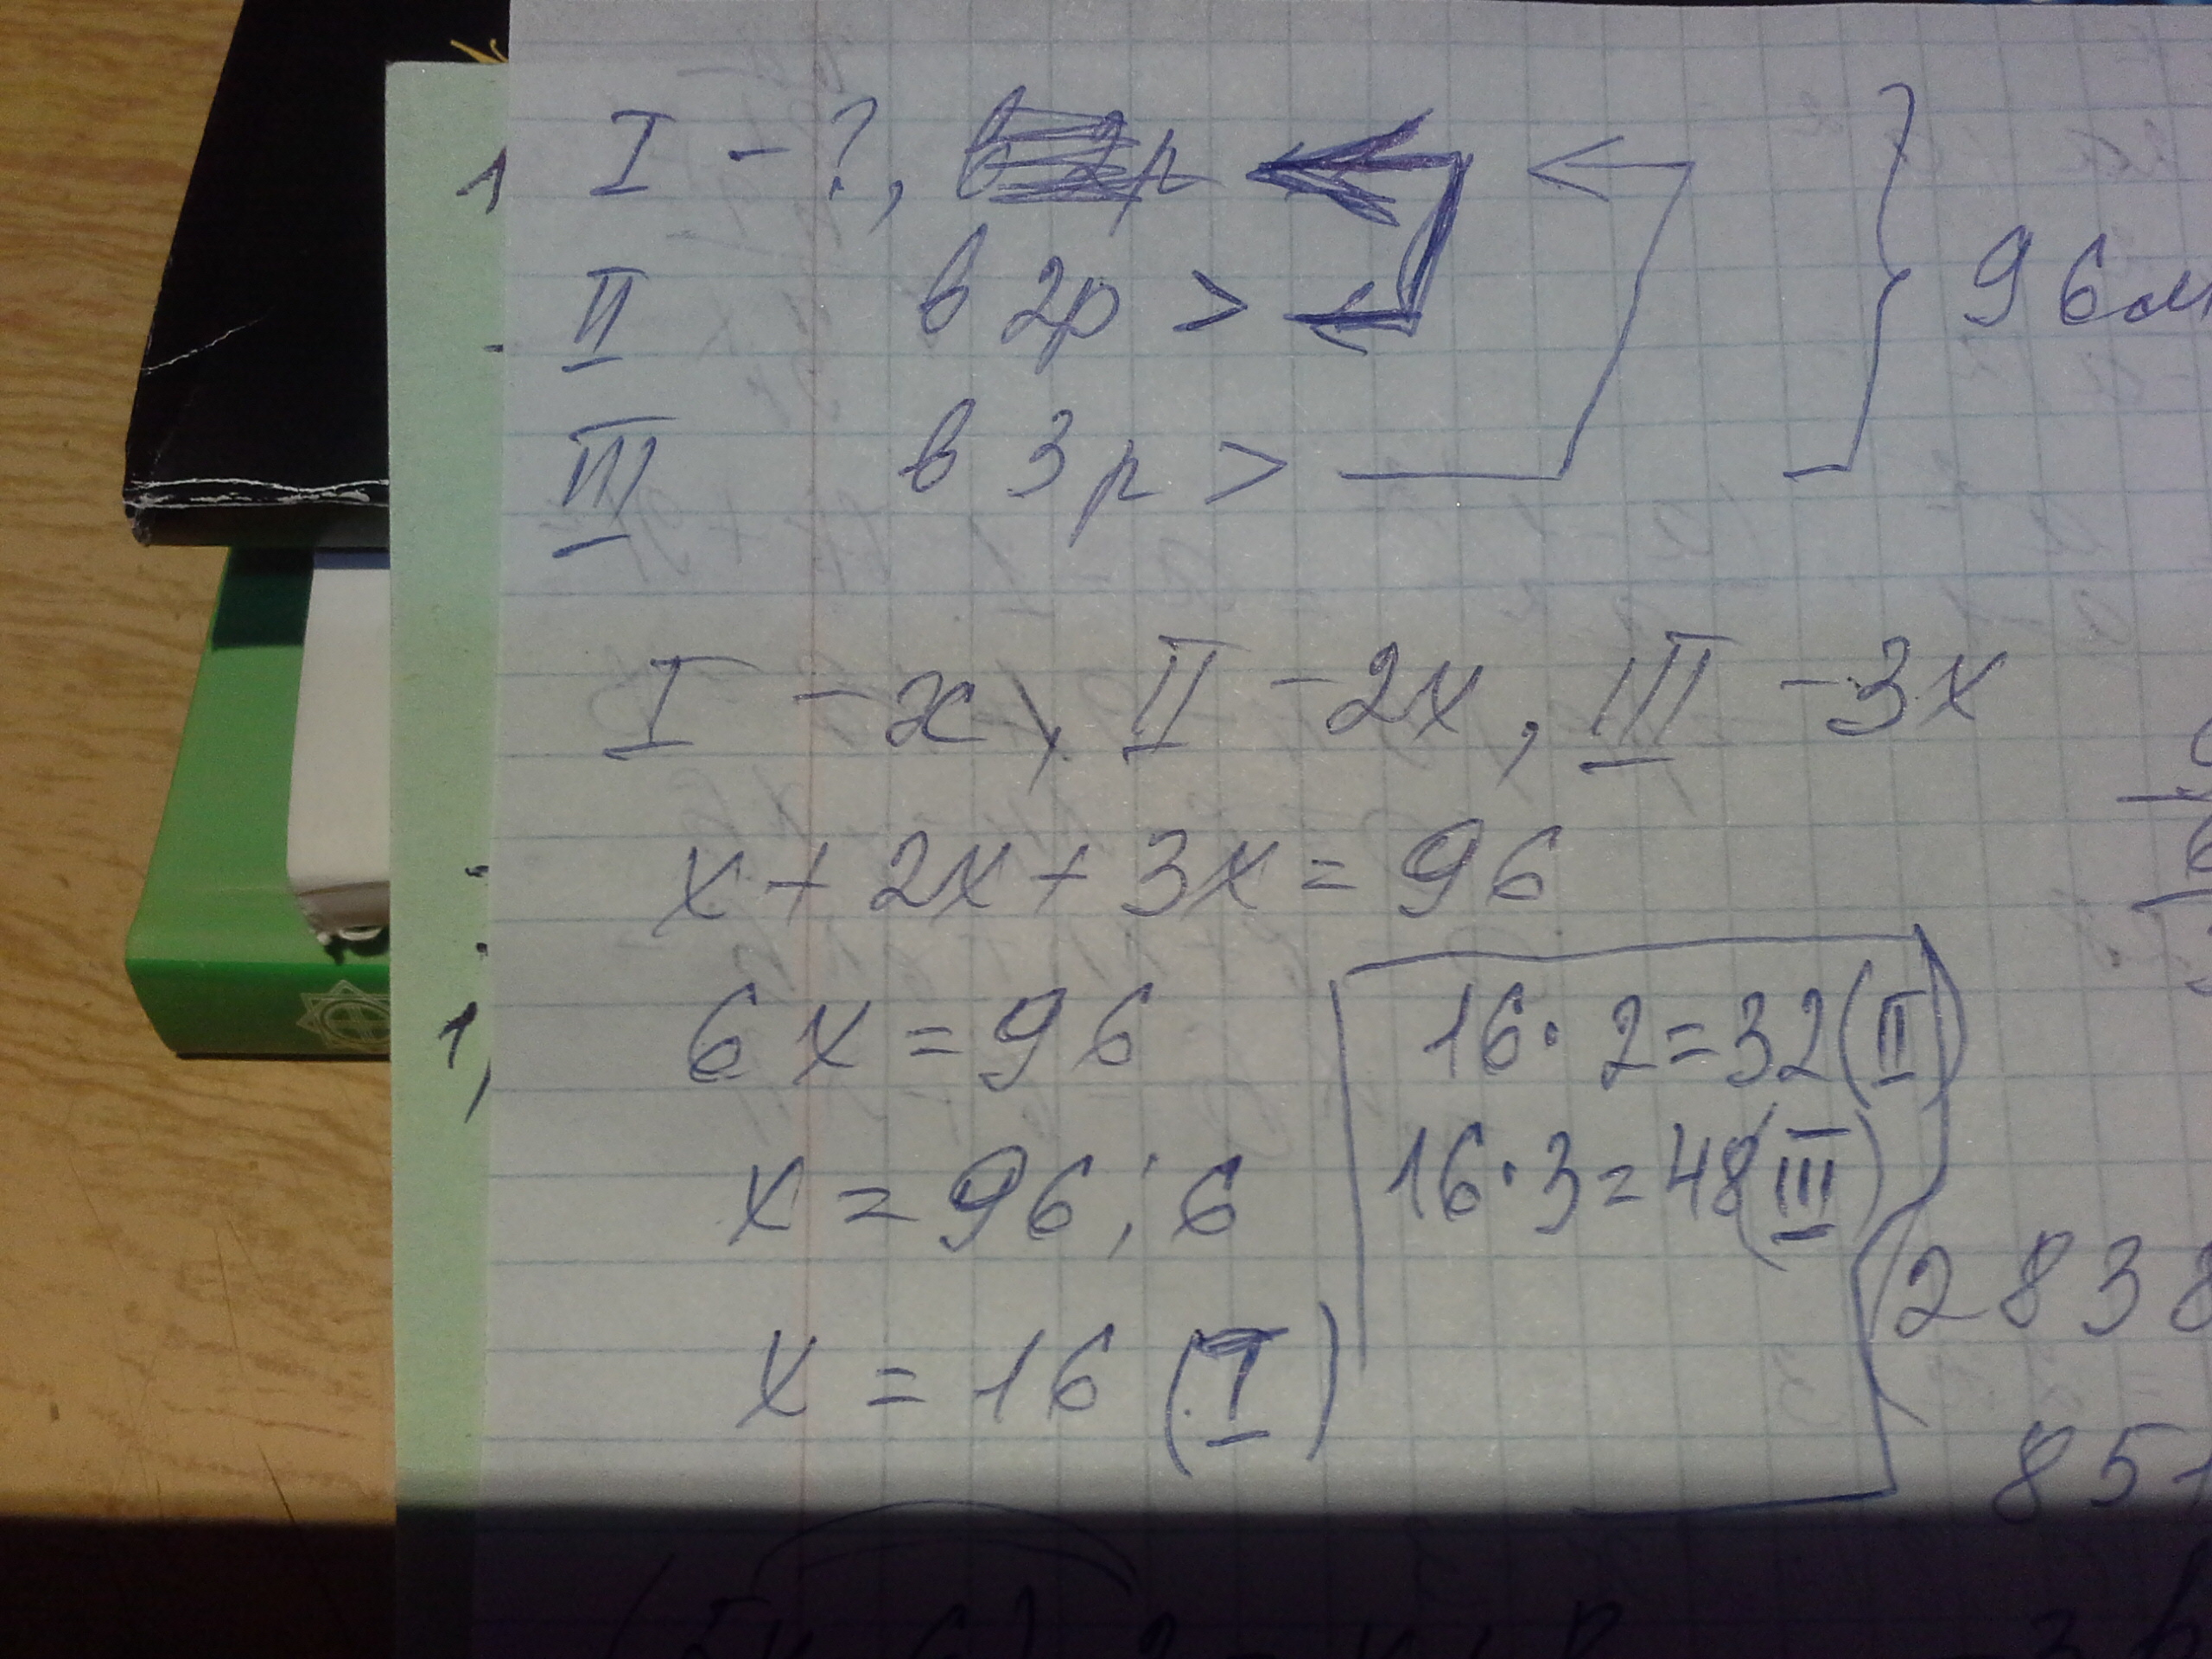 I - ?,
II в 2р >
III в 3р >
96м
I - x, II - 2x, III - 3x
x + 2x + 3x = 96
6x = 96
x = 96 : 6
x = 16 (I)
16 · 2 = 32 (II)
16 · 3 = 48 (III)
2838
85